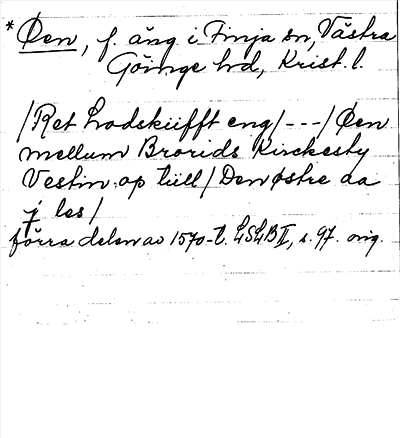 * Øen, f. äng i Finja sn, Västra
Göinge hd, Krist. l.
/Ret hodskiifft eng/---/Øen
mellum Brorids Kirckesty
Vestin op tiill/Den østre aa
j les/
förra delen av 1570-t. LSLB II, s. 97. orig.